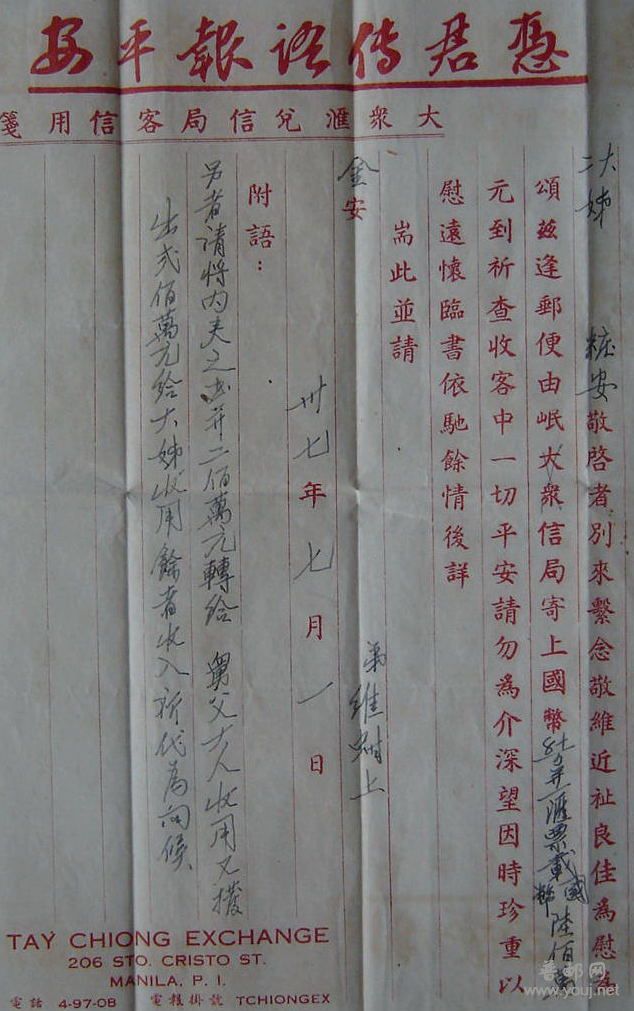 憑君傳語報平安
大衆滙兌信局客信用箋
二大姊
粧安敬啓者別來繫念敬維近祉良佳爲慰爲
頌茲逢郵便由岷大衆信局寄上國幣 并匯票載國幣陸佰萬
元到祈查收客中一切平安請勿爲介深望因時珍重以
慰遠懷臨書依馳餘情後詳
耑此並請
金安
弟維 上
卅七年七月一日
附語：
另者請將內夾之 并二佰萬元轉給 舅父大人收用又撥
出弍佰萬元給大姊收用餘者收入祈代為向候
TAY CHIONG EXCHANGE
206 STO. CRISTO ST.
MANILA, P. I.
電話 4-97-08 電報掛號 TCHIONGEX
善邮网
www.youj.net